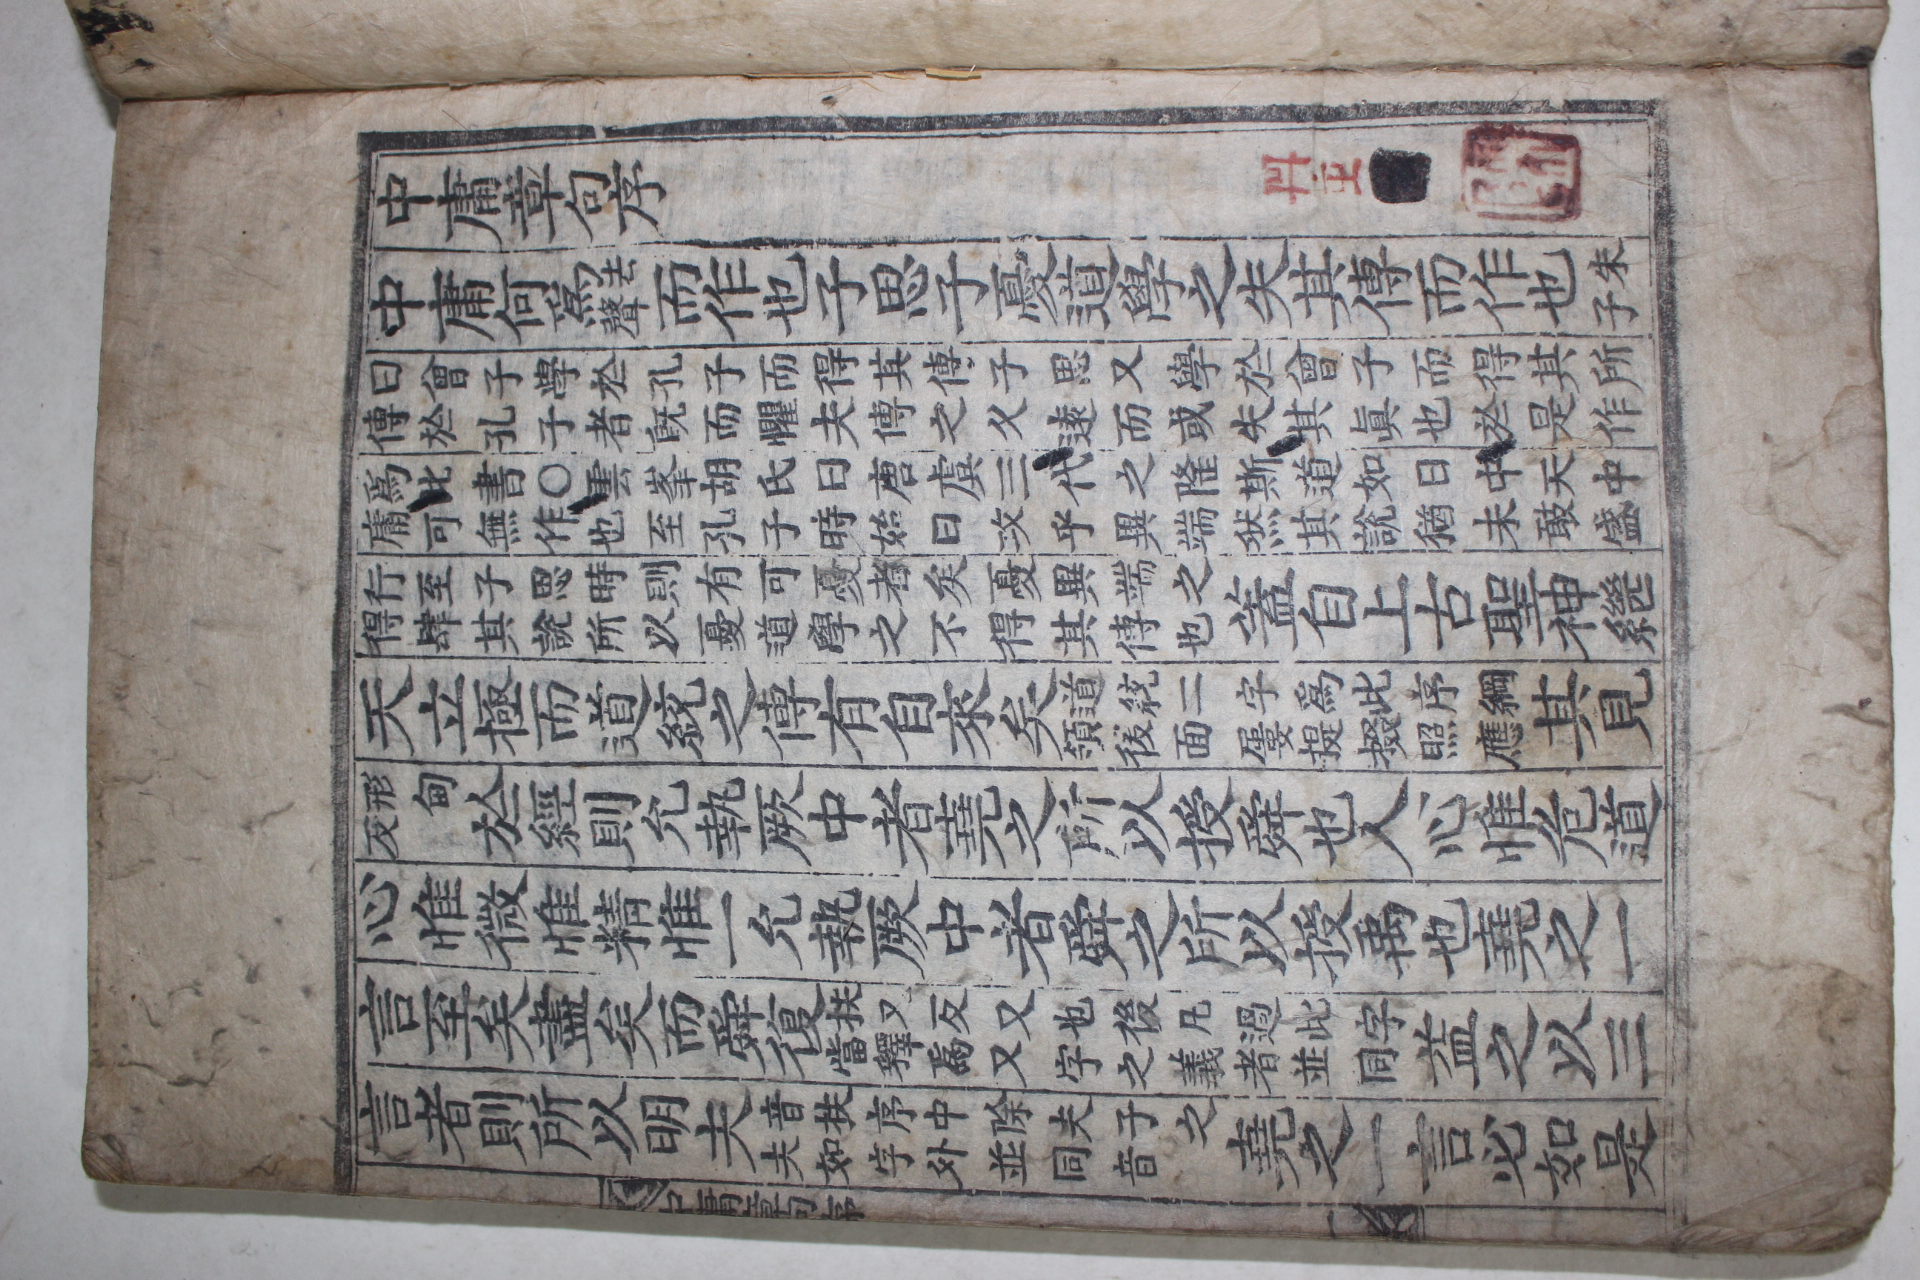 中庸章句序
中庸何爲去聲而作也子思子憂道學之失其傳而作也朱子
曰曾子學於孔子而得其傳子思又學於曾子而得其所
傳於孔子者旣而懼夫傳之久遠而或失其眞也於是作
爲此書○雲峯胡氏曰唐虞三代之隆斯道如日中天中
庸可無作也至孔子時始曰攻乎異端然其說猶未敢盛
行至子思時則有可憂者矣憂異端之
得肆其說所以憂道學之不得其傳也蓋自上古聖神繼
天立極而道統之傳有自來矣道統二字爲此序綱領後面屢提掇照應其見
形甸反於經則允執厥中者堯之所以授舜也人心惟危道
心惟微惟精惟一允執厥中者舜之所以授禹也堯之一
言至矣盡矣而舜復扶又反又也後凡過此字當釋爲又字之義者並同益之以三
言者則所以明夫音扶序中除夫子之夫如字外並同音堯之一言必如是
中庸章句序